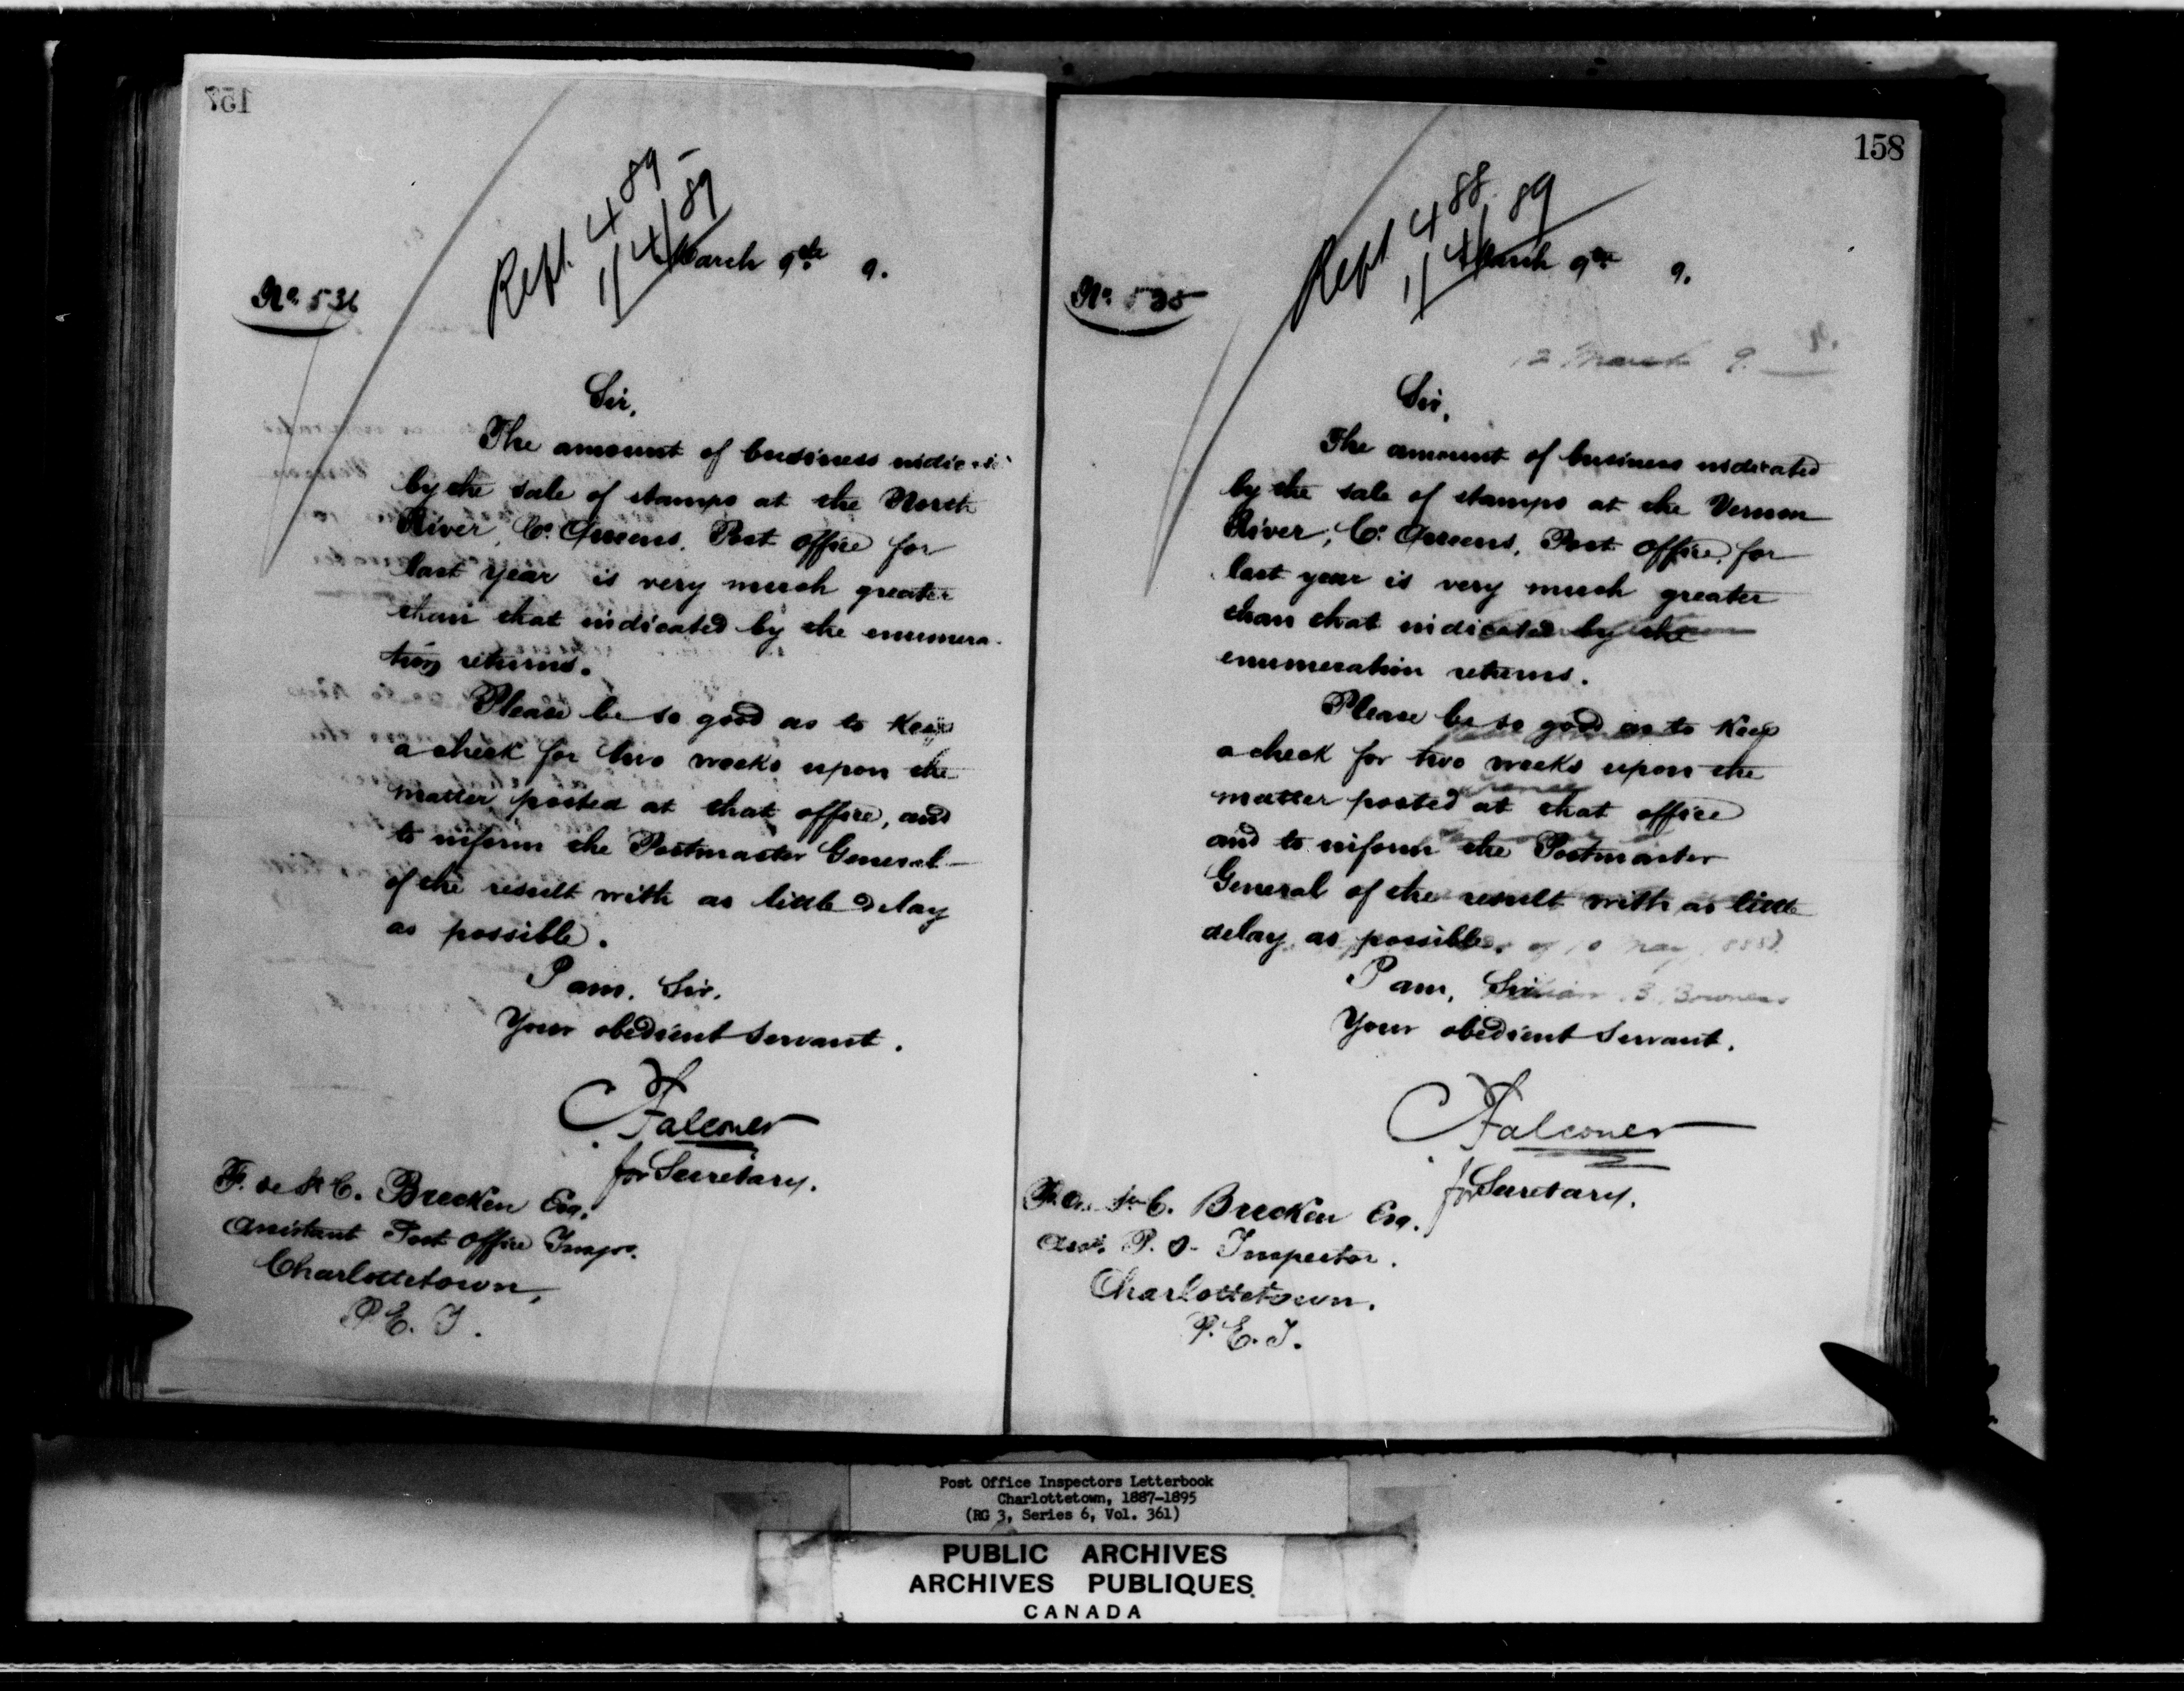 157
Rept. 4 89
11/4/89
March 9th 9.
No. 536
Sir,
The amount of business
by the sale of stamps at the North
River, Co. Queens, Post office for
last year is very much greater
than that indicated by the enumera-
tion returns.
Please be so good as to keep
a check for two weeks upon the
matter posted at that office, and
to inform the Postmaster General
of the result with as little delay
as possible.
I am, Sir,
Your obedient servant.
Falconer
for Secretary.
F. de St C. Brecken Esq.
Assistant Post Office Inspr.
Charlottetown,
P.E.I.
158
Rept 4 88. 89
11/4
March 9th 9.
No. 535
12 March 9.
Sir,
The amount of business indicated
by the sale of stamps at the Vernon
River, Co. Queens, Post office, for
last year is very much greater
than that indicated by the
enumeration returns.
Please be so good as to keep
a check for two weeks upon the
matter posted at that office
and to inform the Postmaster
General of the result with as little
delay as possible.
I am, Sir
Your obedient servant.
Falconer
for Secretary.
F. de St C. Brecken Esq.
Asst. P. O. Inspector.
Charlottetown.
P.E.I.
Post Office Inspectors Letterbook
Charlottetown, 1887-1895
(RG 3, Series 6, Vol. 361)
PUBLIC ARCHIVES
ARCHIVES PUBLIQUES
CANADA